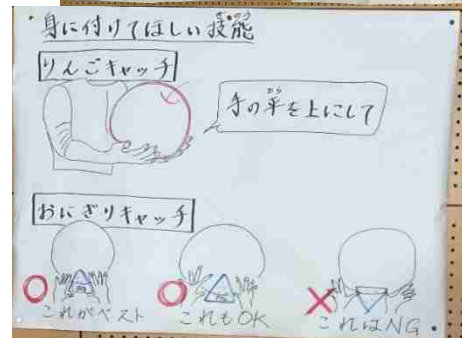 身に付けてほしい技能
ぎのう
りんごキャッチ
手の平を上にして
ひら
おにぎりキャッチ
これがベスト
これもOK
これはNG